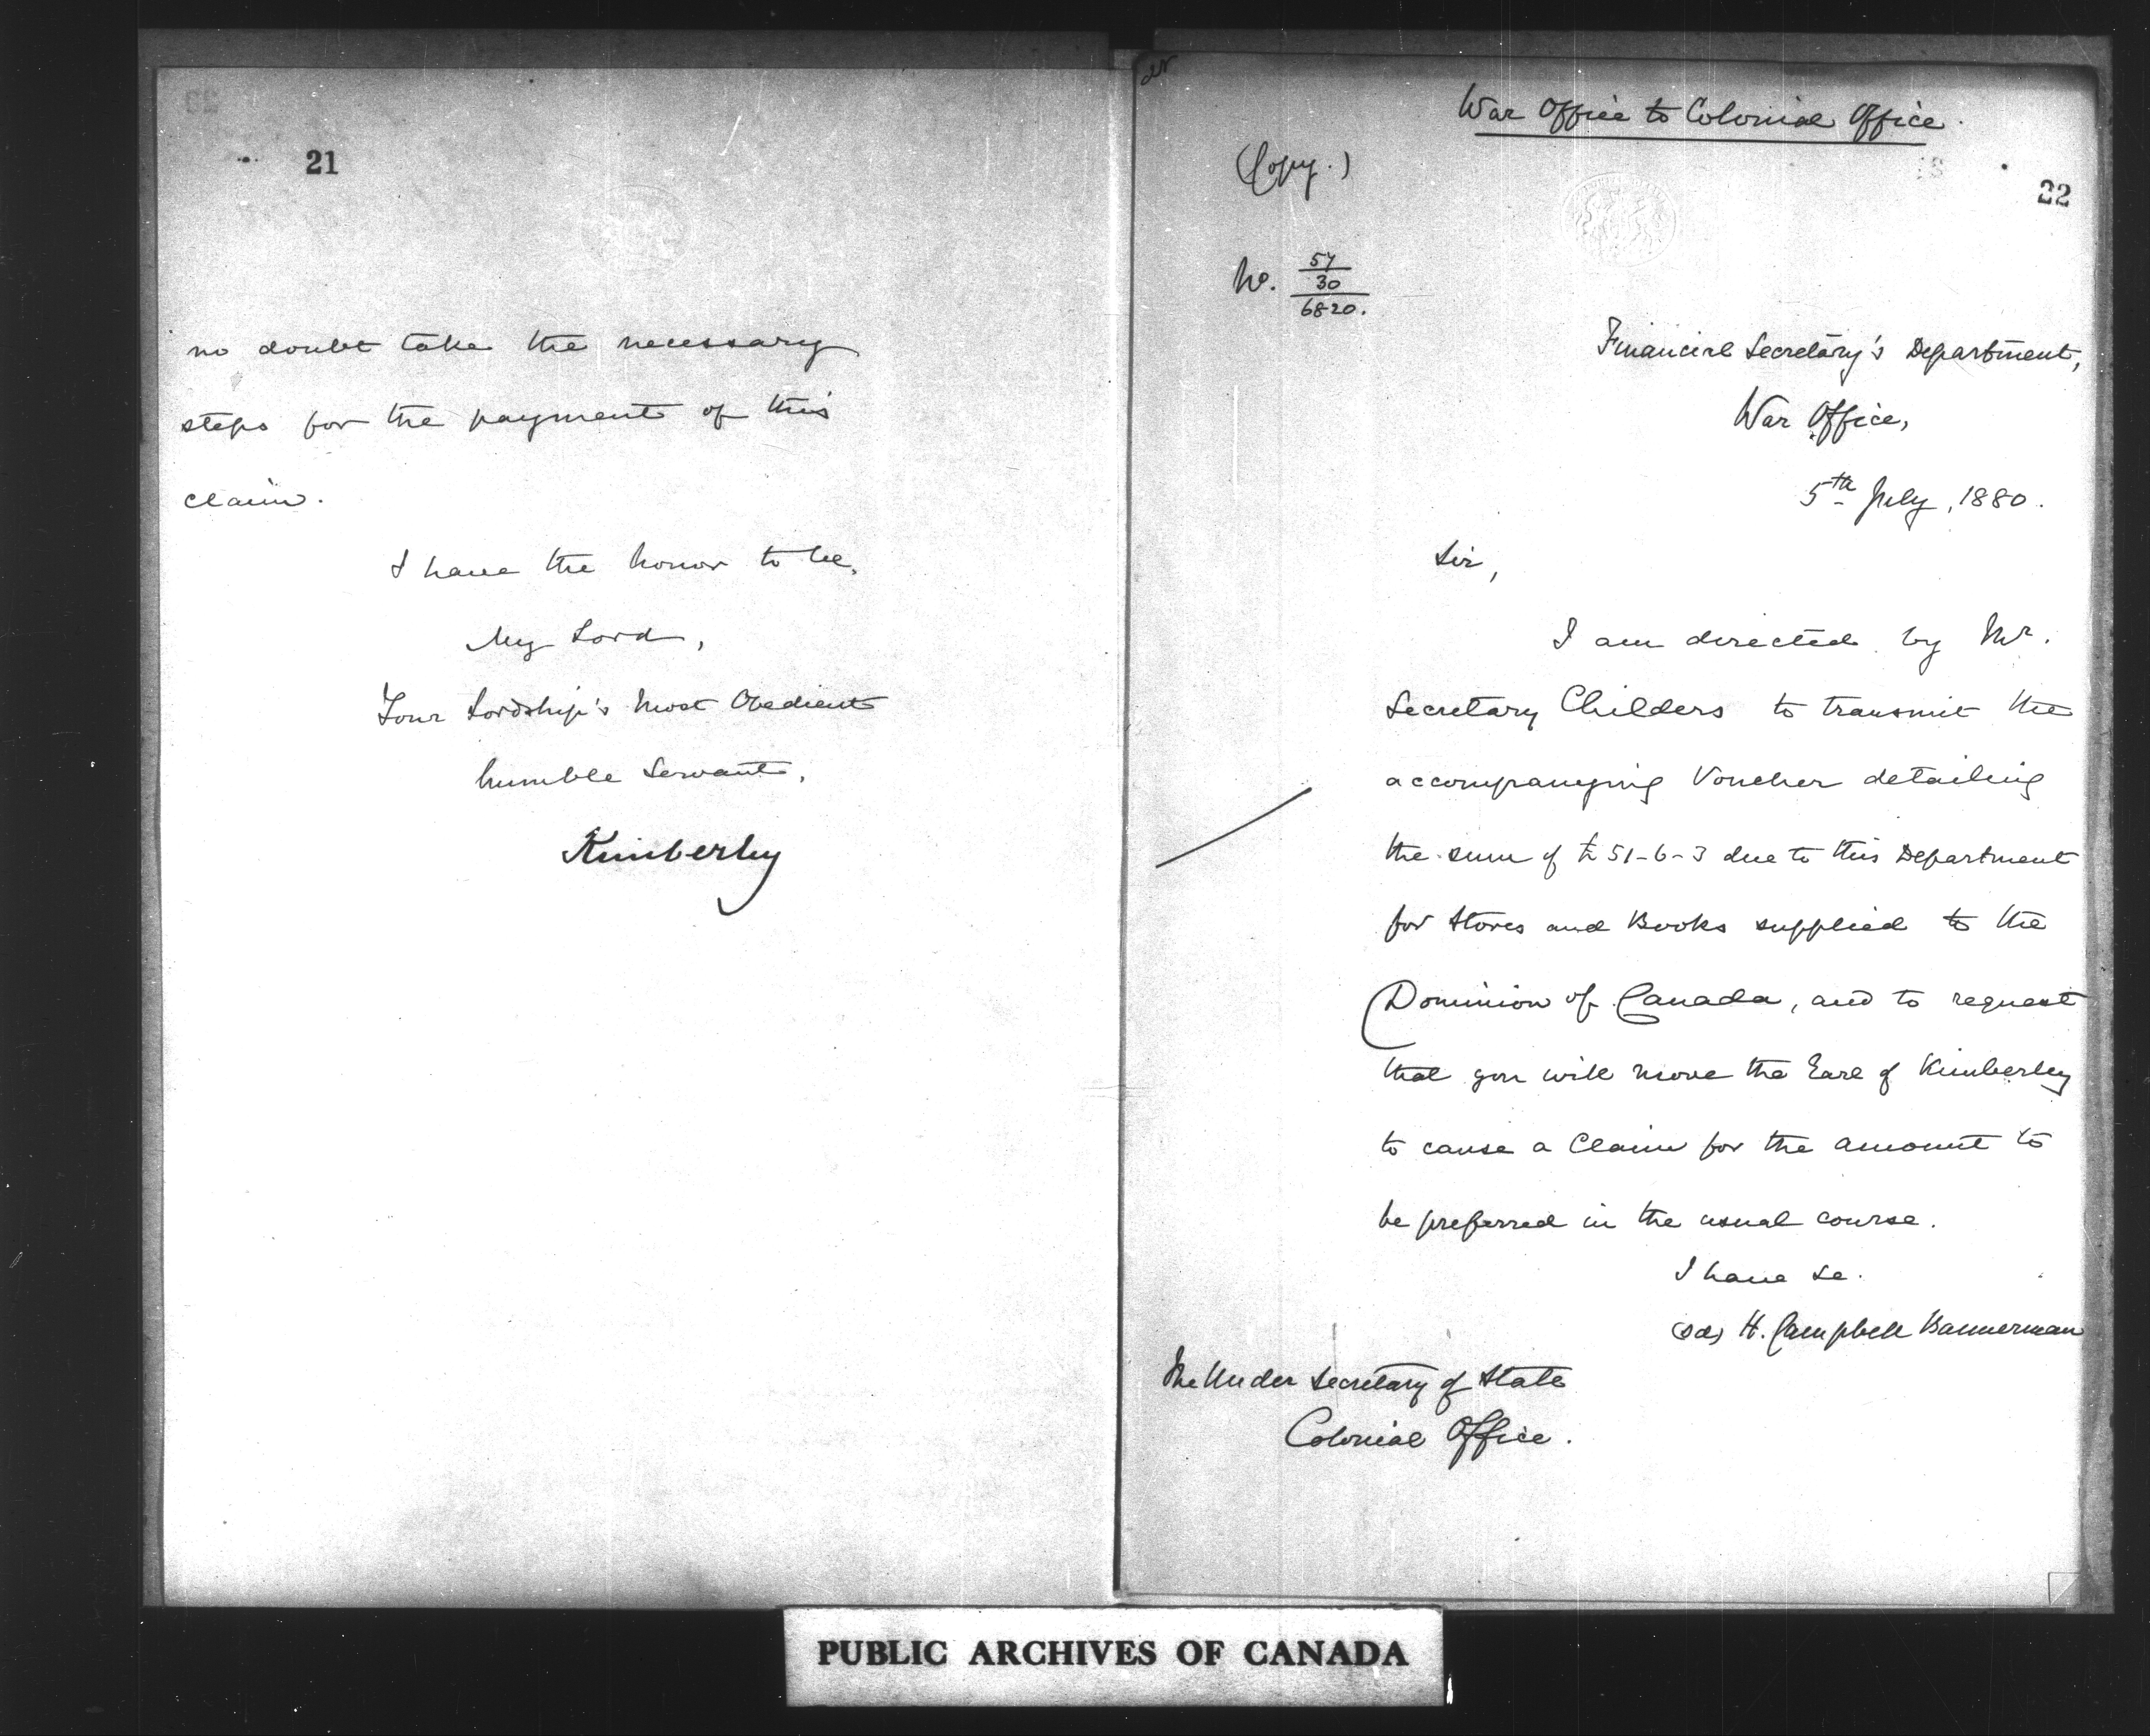 21
no doubt take the necessary
steps for the payment of this
claim.
I have the honor to be,
My Lord,
Your Lordship's Most Obedient
humble Servant,
Kimberley
War Office to Colonial Office.
(Copy.)
22
No. 57
30
6820.
Financial Secretary's Department,
War Office,
5th July, 1880.
Sir,
I am directed by Mr.
Secretary Childers to transmit the
accompanying Voucher detailing
the sum of £51-6-3 due to this Department
for Stores and Books supplied to the
Dominion of Canada, and to request
that you will move the Earl of Kimberley
to cause a Claim for the amount to
be preferred in the usual course.
I have &c.
(sd) H. Campbell Bannerman
The Under Secretary of State
Colonial Office.
PUBLIC ARCHIVES OF CANADA